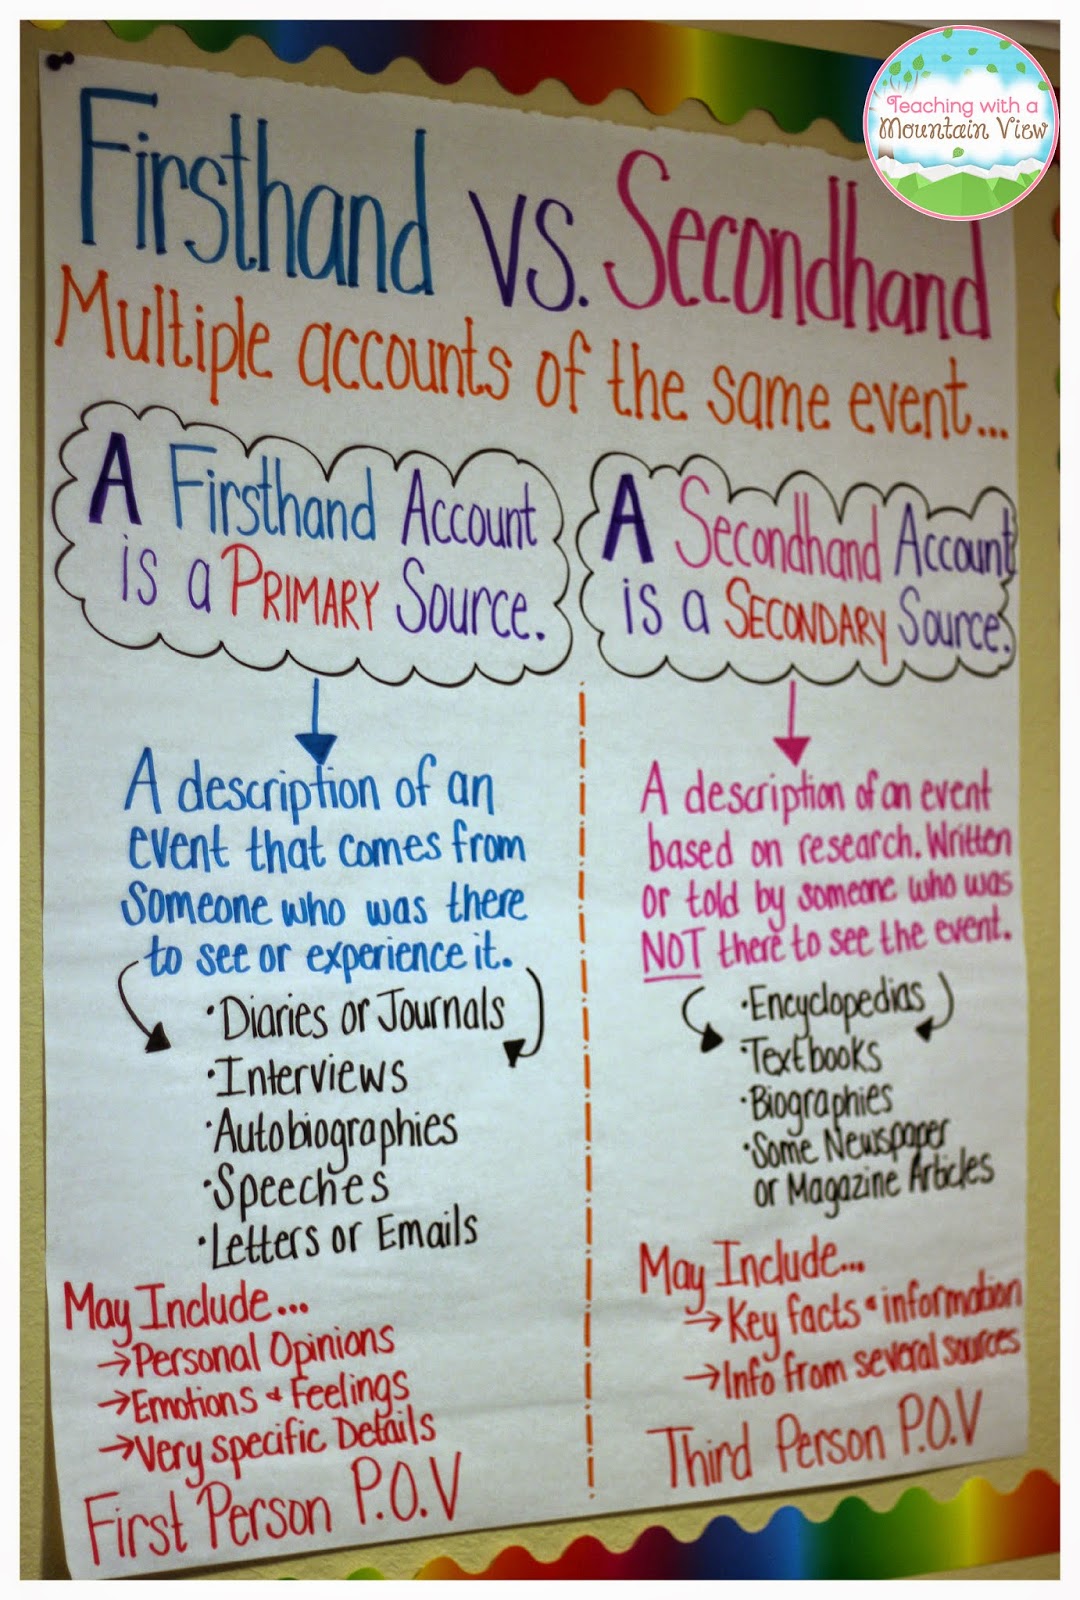 Teaching with a
Mountain View
Firsthand vs. Secondhand
Multiple accounts of the same event...
A Firsthand Account
is a PRIMARY Source.
A description of an
event that comes from
someone who was there
to see or experience it.
•Diaries or Journals
•Interviews
•Autobiographies
•Speeches
•Letters or Emails
May Include...
→Personal Opinions
→Emotions & Feelings
→Very specific Details
First Person P.O.V
A Secondhand Account
is a SECONDARY Source.
A description of an event
based on research. Written
or told by someone who was
NOT there to see the event.
•Encyclopedias
•Textbooks
•Biographies
•Some Newspaper
or Magazine Articles
May Include...
→Key facts & information
→Info from several sources
Third Person P.O.V